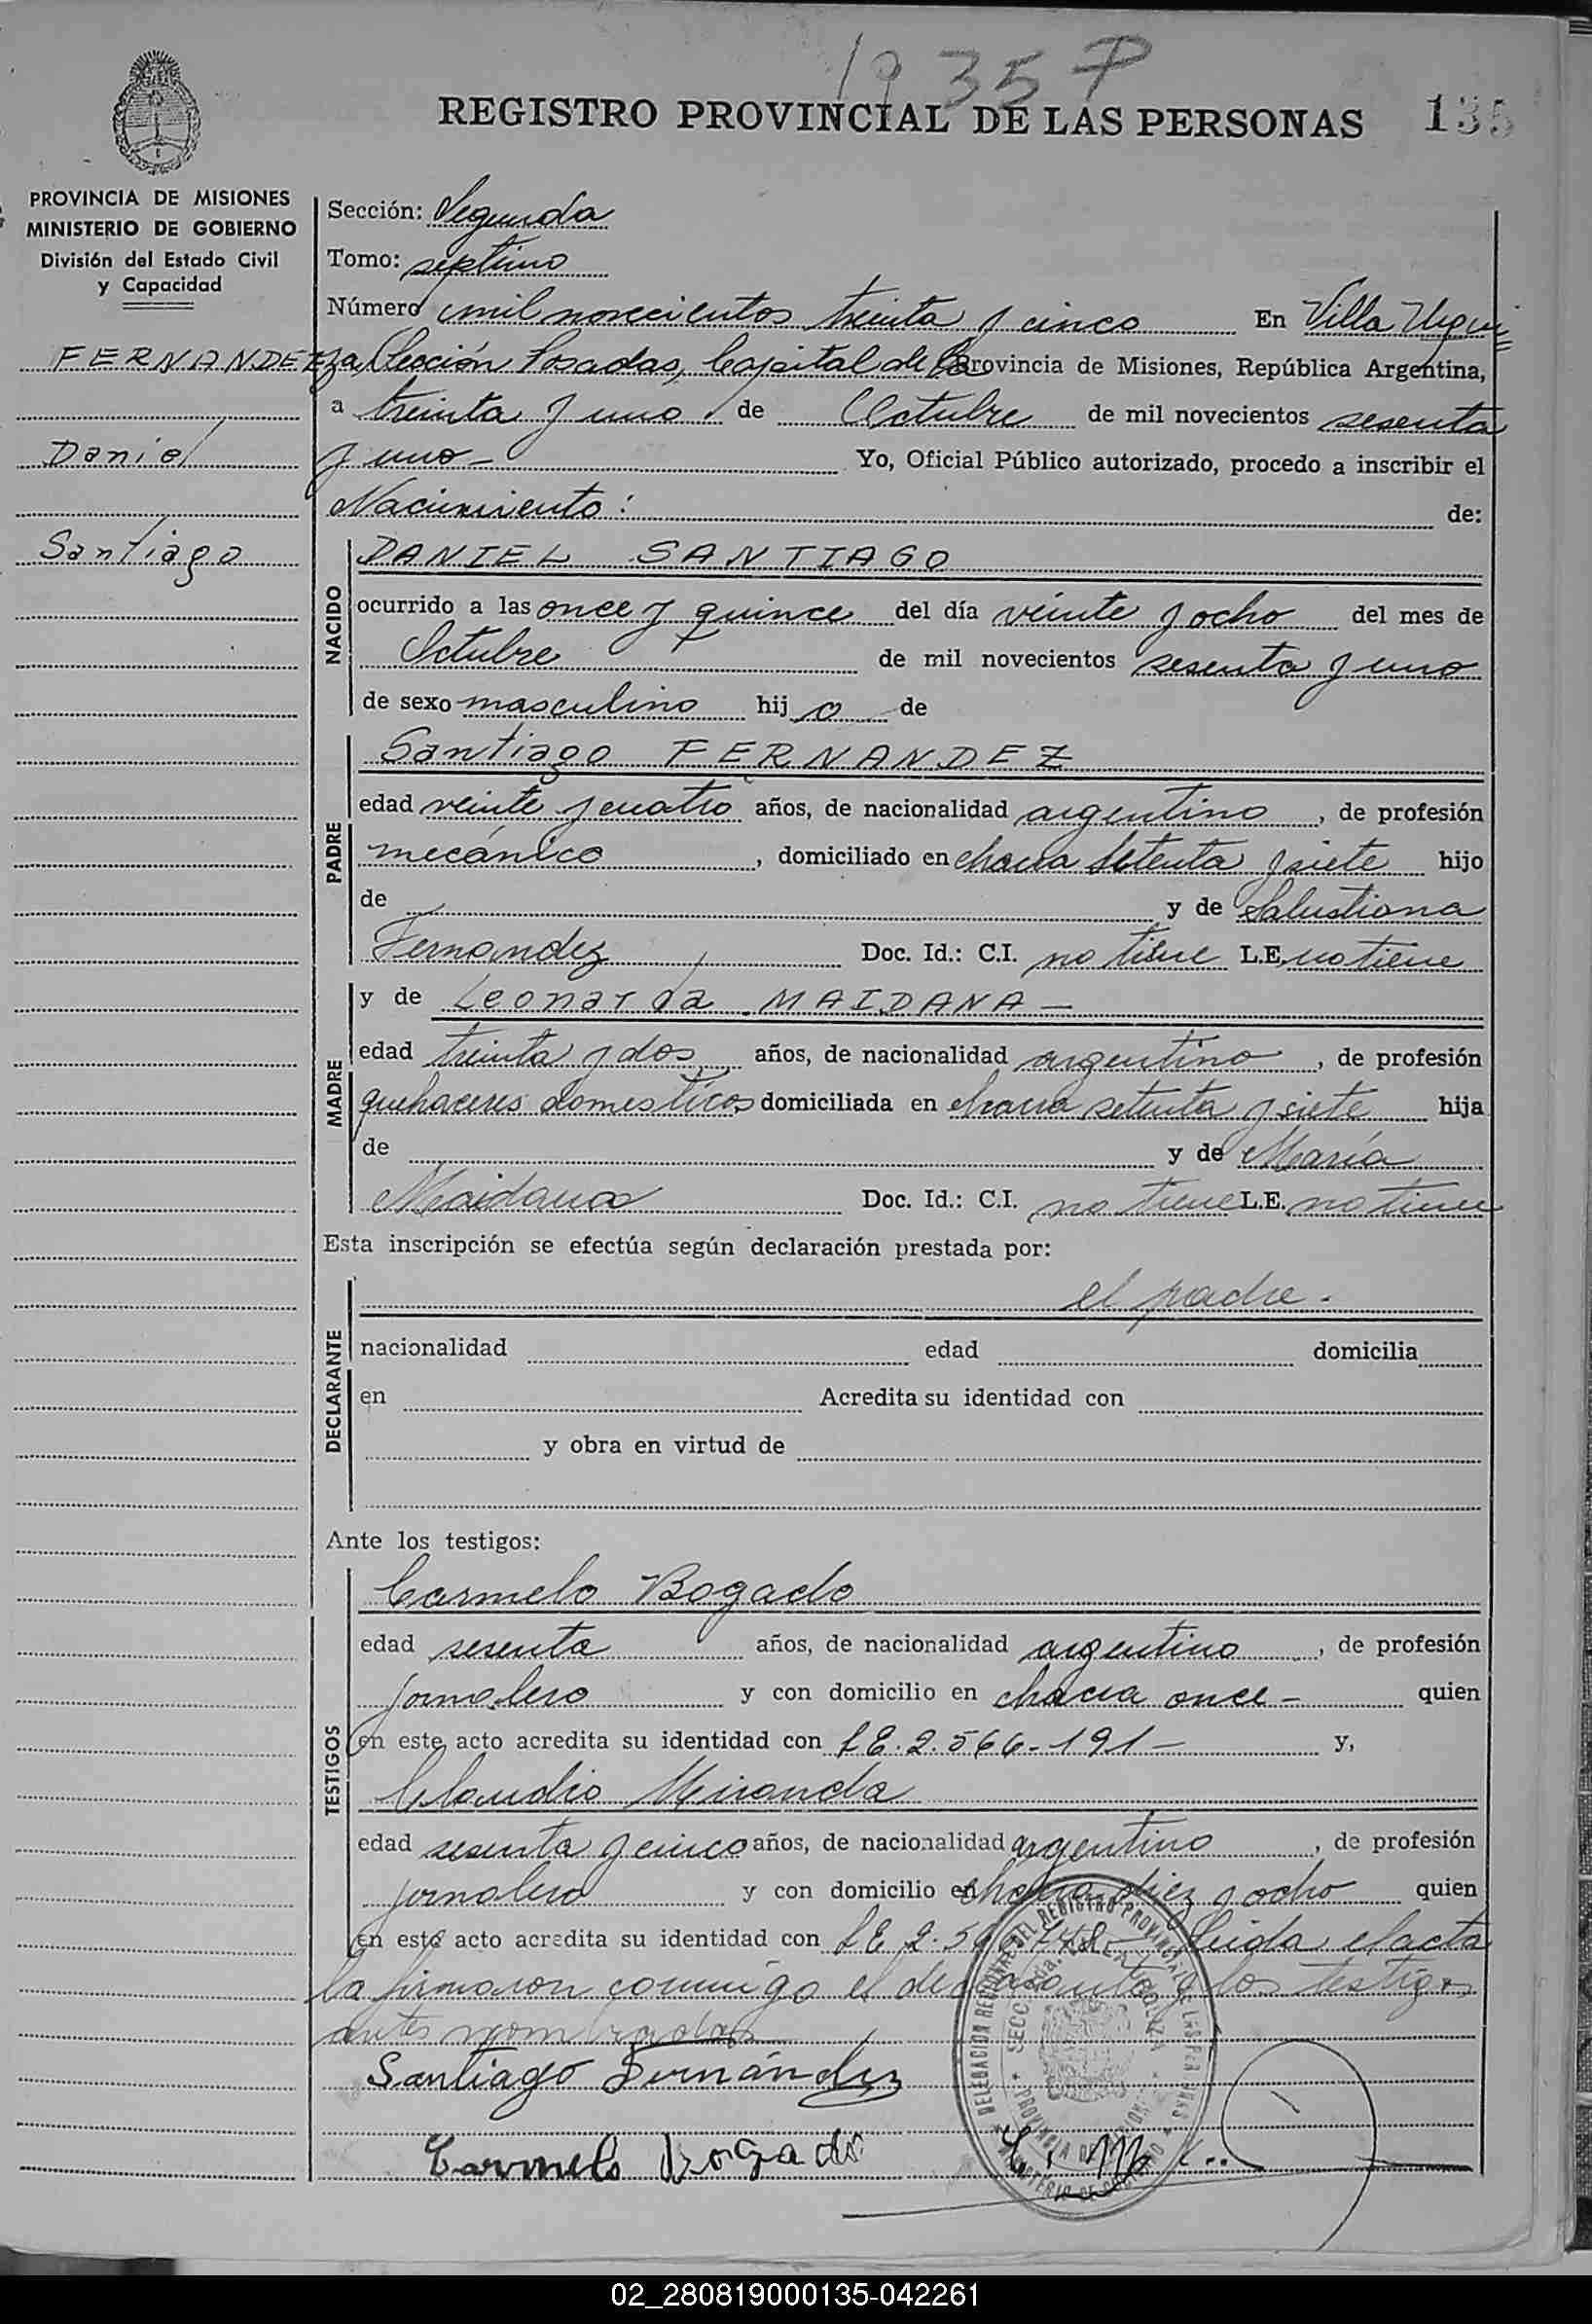 1935 P
REGISTRO PROVINCIAL DE LAS PERSONAS 135
PROVINCIA DE MISIONES
MINISTERIO DE GOBIERNO
División del Estado Civil
y Capacidad
FERNANDEZ
Daniel
Santiago
Sección: Segunda
Tomo: septimo
Número mil novecientos treinta y cinco En Villa Urqui
za, Sección Posadas, Capital de la Provincia de Misiones, República Argentina,
a treinta y uno de Octubre de mil novecientos sesenta
y uno - Yo, Oficial Público autorizado, procedo a inscribir el
Nacimiento: de:
NACIDO
DANIEL SANTIAGO
ocurrido a las once y quince del día veinte y ocho del mes de
Octubre de mil novecientos sesenta y uno
de sexo masculino hij o de
PADRE
Santiago FERNANDEZ
edad veinte y cuatro años, de nacionalidad argentino, de profesión
mecánico, domiciliado en chacra setenta y siete hijo
de y de Salustiana
Fernandez Doc. Id.: C.I. no tiene L.E. no tiene
MADRE
y de Leonarda MAIDANA -
edad treinta y dos años, de nacionalidad argentino, de profesión
quehaceres domesticos domiciliada en chacra setenta y siete hija
de y de María
Maidana Doc. Id.: C.I. no tiene L.E. no tiene
Esta inscripción se efectúa según declaración prestada por:
DECLARANTE
el padre.
nacionalidad edad domicilia
en Acredita su identidad con
y obra en virtud de
Ante los testigos:
TESTIGOS
Carmelo Bogado
edad sesenta años, de nacionalidad argentino, de profesión
jornalero y con domicilio en chacra once - quien
en este acto acredita su identidad con L.E. 2.566.191 - y,
Claudio Miranda
edad sesenta y cinco años, de nacionalidad argentino, de profesión
jornalero y con domicilio en chacra diez y ocho quien
en este acto acredita su identidad con L.E. 2. Leida el acta
la firmaron conmigo el declarante y los testigos
antes nombrados
Santiago Fernández
Carmelo Bogado C. M.
DELEGACION REGIONAL DEL REGISTRO PROVINCIAL DE LAS PERSONAS
PROVINCIA DE MISIONES
MINISTERIO DE GOBIERNO
02_280819000135-042261